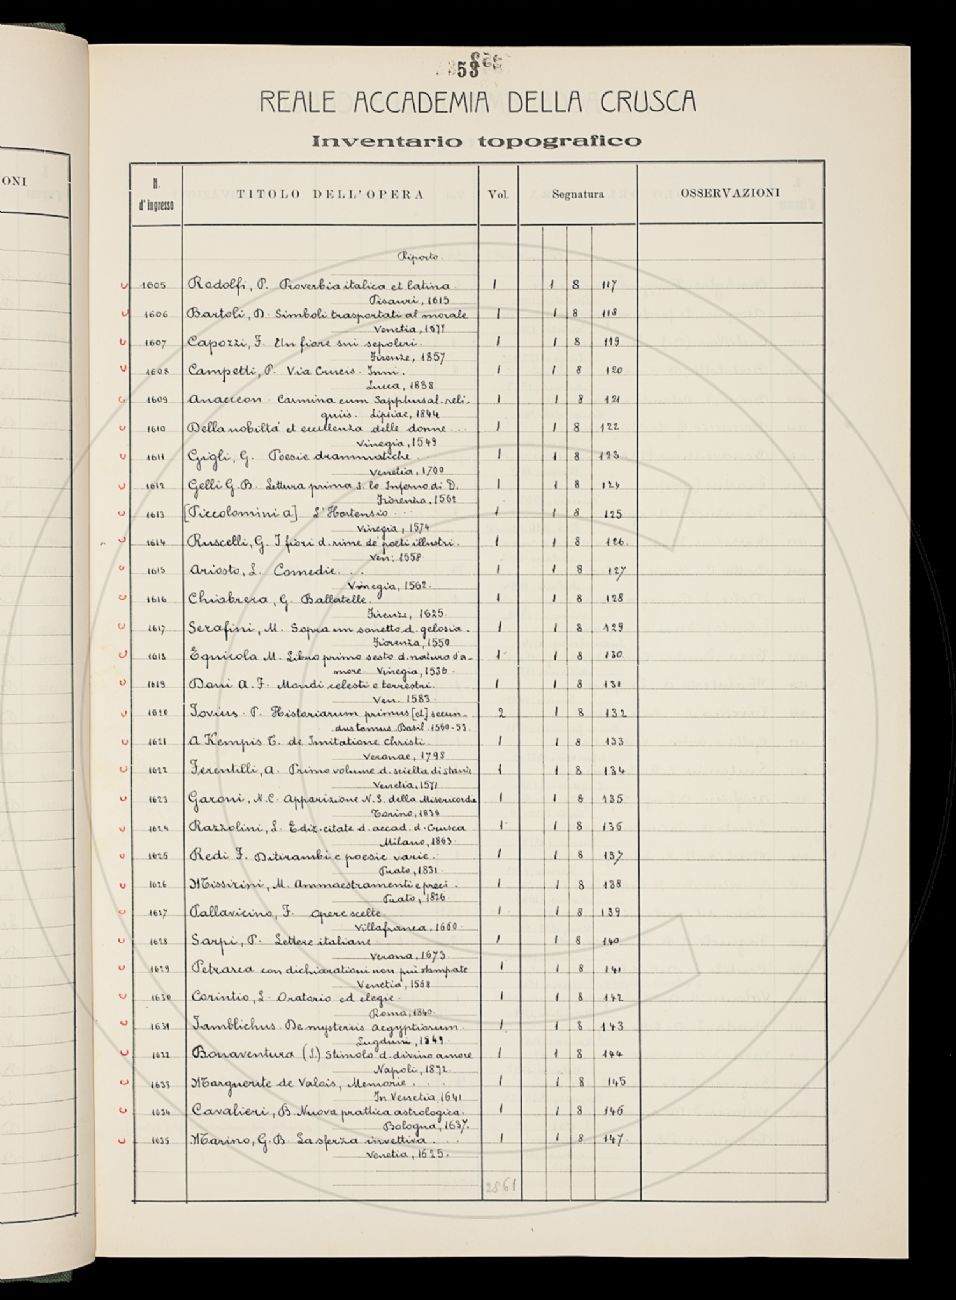 53
REALE ACCADEMIA DELLA CRUSCA
Inventario topografico
ONI
N. d'ingresso TITOLO DELL'OPERA Vol. Segnatura OSSERVAZIONI
Riporto
1605 Rodolfi, P. Proverbia italica et latina. 1 1 8 117
Pisauri, 1615
1606 Bartoli, D. Simboli trasportati al morale 1 1 8 118
Venetia, 1677
1607 Capozzi, F. Un fiore sui sepolcri. 1 1 8 119
Firenze, 1857
1608 Campetti, P. Via Crucis. Inni. 1 1 8 120
Lucca, 1838
1609 Anacreon. Carmina cum Sapphus al. reli- 1 1 8 121
quiis. Lipsiae, 1844
1610 Della nobiltà et eccellenza delle donne... 1 1 8 122
Vinegia, 1549
1611 Gigli, G. Poesie drammatiche.. 1 1 8 123
Venetia, 1700
1612 Gelli G. B. Lettura prima s. lo Inferno di D. 1 1 8 124
Fiorenza, 1562
1613 [Piccolomini A] L'Hortensio... 1 1 8 125
Vinegia, 1574
1614 Ruscelli, G. I fiori d. rime de' poeti illustri. 1 1 8 126.
Ven: 1558
1615 Ariosto, L. Comedie... 1 1 8 127
Vinegia, 1562.
1616 Chiabrera, G. Ballatelle. 1 1 8 128
Firenze, 1625.
1617 Serafini, M. Sopra un sonetto d. gelosia. 1 1 8 129
Fiorenza, 1550
1618 Equicola M. Libro primo sesto d. natura d'a- 1 1 8 130
more Vinegia, 1536.
1619 Doni A. F. Mondi celesti e terrestri. 1 1 8 131
Ven. 1583
1620 Jovius. P. Historiarum primus [et] secun- 2 1 8 132
dus tomus. Basil. 1560-53.
1621 A Kempis T. de Imitatione Christi. 1 1 8 133
Veronae, 1798
1622 Ferentilli, A. Primo volume d. scielta di stanze 1 1 8 134
Venetia, 1571
1623 Garoni, N. C. Apparizione N. S. della Misericordia 1 1 8 135
Torino, 1838
1624 Razzolini, L. Ediz. citate d. accad. d. Crusca 1 1 8 136
Milano, 1863.
1625 Redi F. Ditirambi e poesie varie. 1 1 8 137
Prato, 1831.
1626 Missirini, M. Ammaestramenti e preci. 1 1 8 138
Prato, 1826
1627 Pallavicino, F. Opere scelte 1 1 8 139
Villafranca, 1660.
1628 Sarpi, P. Lettere italiane 1 1 8 140
Verona, 1673
1629 Petrarca con dichiarationi non più stampate 1 1 8 141
Venetia, 1568
1630 Corintio, L. Oratorio ed elegie. 1 1 8 142
Roma, 1840.
1631 Jamblichus. De mysteriis Aegyptiorum. 1 1 8 143
Lugduni, 1549.
1632 Bonaventura (S.) Stimolo d. divino amore 1 1 8 144
Napoli, 1872.
1633 Marguerite de Valois, Memorie... 1 1 8 145
In Venetia, 1641
1634 Cavalieri, B. Nuova prattica astrologica. 1 1 8 146
Bologna, 1637.
1635 Marino, G. B. La sferza invettiva... 1 1 8 147
Venetia, 1625.
2861